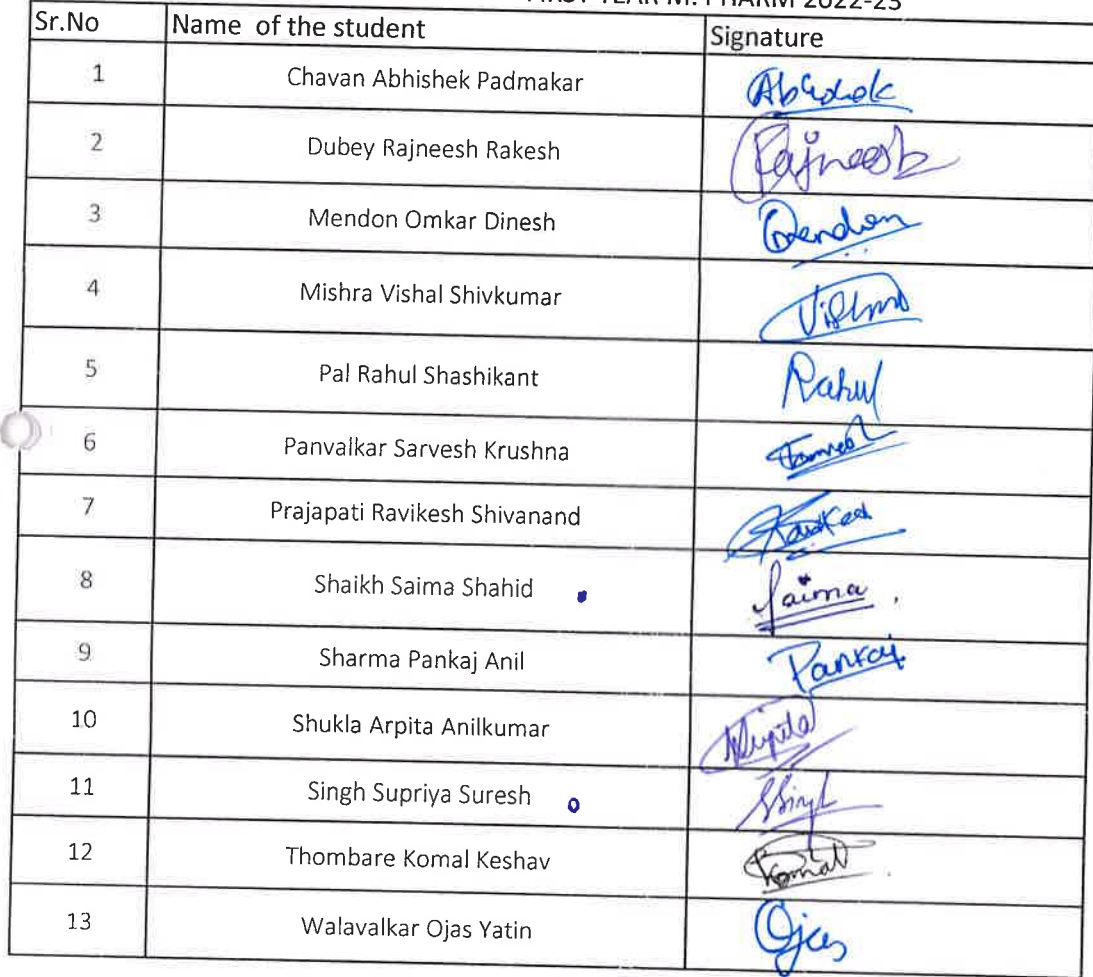 FIRST YEAR M. PHARM 2022-23
Sr.No Name of the student Signature
1 Chavan Abhishek Padmakar Abhishek
2 Dubey Rajneesh Rakesh Rajneesh
3 Mendon Omkar Dinesh Mendon
4 Mishra Vishal Shivkumar Vishal
5 Pal Rahul Shashikant Rahul
6 Panvalkar Sarvesh Krushna
7 Prajapati Ravikesh Shivanand
8 Shaikh Saima Shahid Saima
9 Sharma Pankaj Anil Pankaj
10 Shukla Arpita Anilkumar Arpita
11 Singh Supriya Suresh SSingh
12 Thombare Komal Keshav Komal
13 Walavalkar Ojas Yatin Ojas